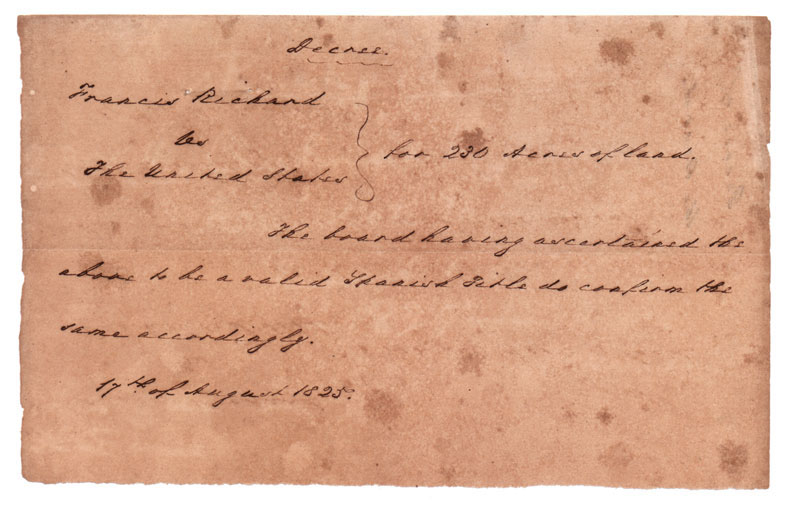 Decree.
Francis Richard
vs
The United States
for 230 Acres of land.
The board having ascertained the
above to be a valid Spanish Title do confirm the
same accordingly.
17th of August 1825.